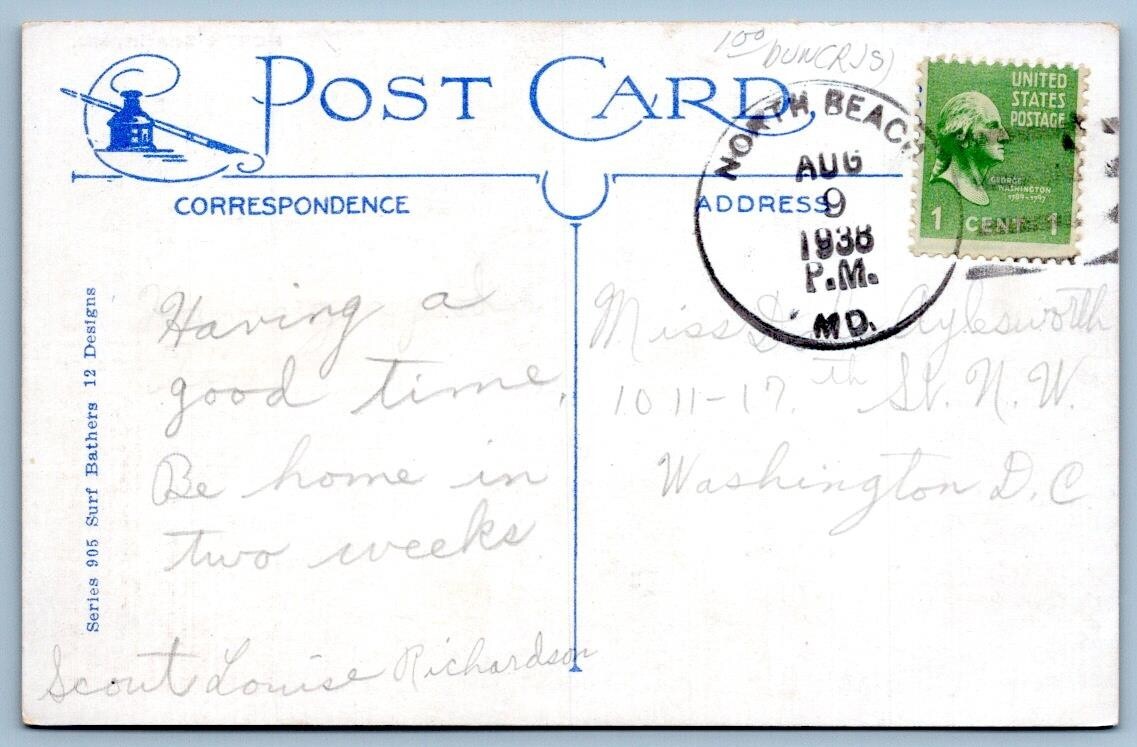 POST CARD
CORRESPONDENCE
ADDRESS
NORTH BEACH
AUG
9
1938
P.M.
MD.
UNITED
STATES
POSTAGE
GEORGE
WASHINGTON
1789-1797
1 CENT 1
100
Series 905 Surf Bathers 12 Designs
Having a
good time,
Be home in
two weeks.
Scout Louise Richardson
Miss Aylesworth
1011-17th St. N.W.
Washington D.C